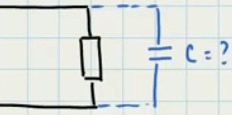 C = ?